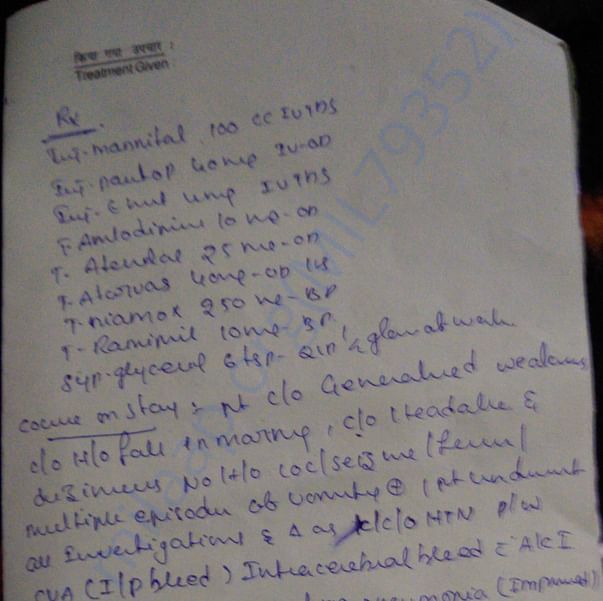 किया गया उपचार :
Treatment Given
Rx
Inj-mannital 100 cc IV TDS
Inj-pantop 40mg IV-OD
Inj-Emet 4mg IV TDS
T-Amlodinine 10 mg-OD
T- 25 mg-OD
T-Atorvas 40mg-OD HS
T-niamox 250 mg- BD
T- 10mg BD
Syp-glycerol 6tsp- QID glass of water
course on stay : pt c/o Generalised weakness
c/o H/o fall in morning, c/o Headache &
No H/o LOC/seizure/fever/
multiple episodes of vomiting ⊕ , pt underwent
all Investigations & Δ as k/c/o HTN
CVA (I/P bleed) Intracerebral bleed c̄ AKI
pneumonia (Improved)
milaap.org(MIL79352)